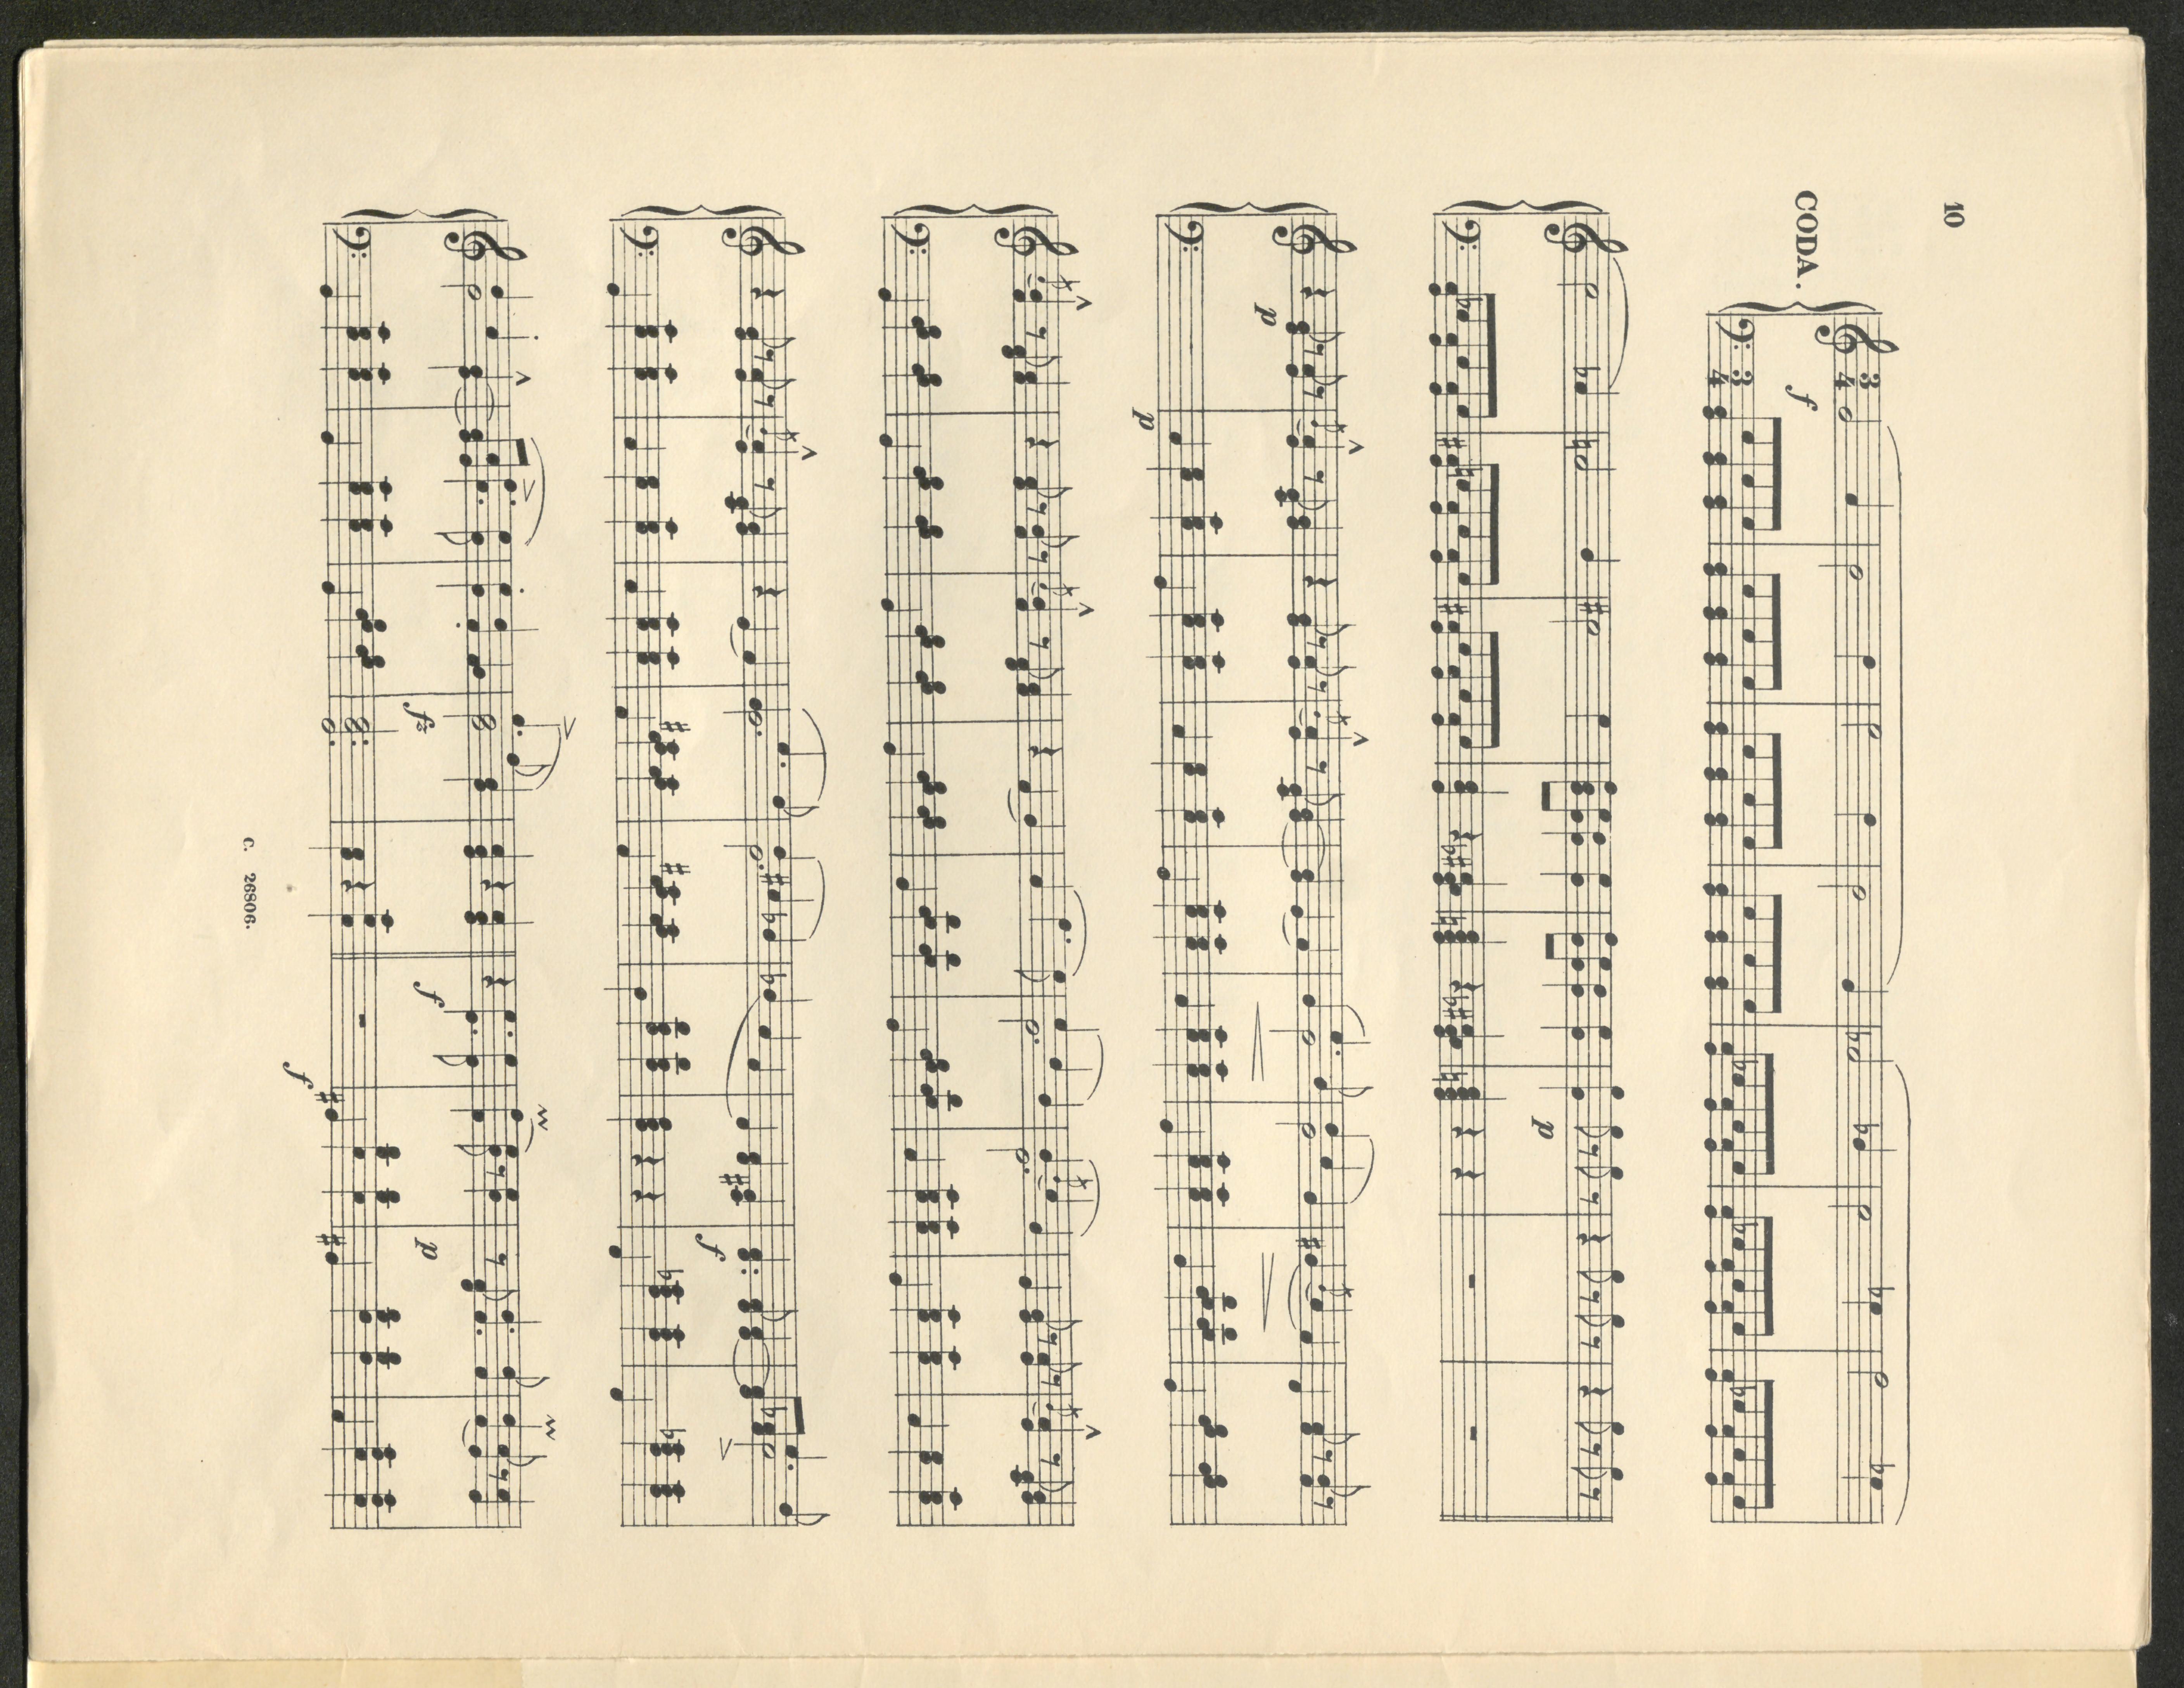 10
CODA.
3
4
f
3
4
p
p
p
f
fz
f
f
p
C. 26806.